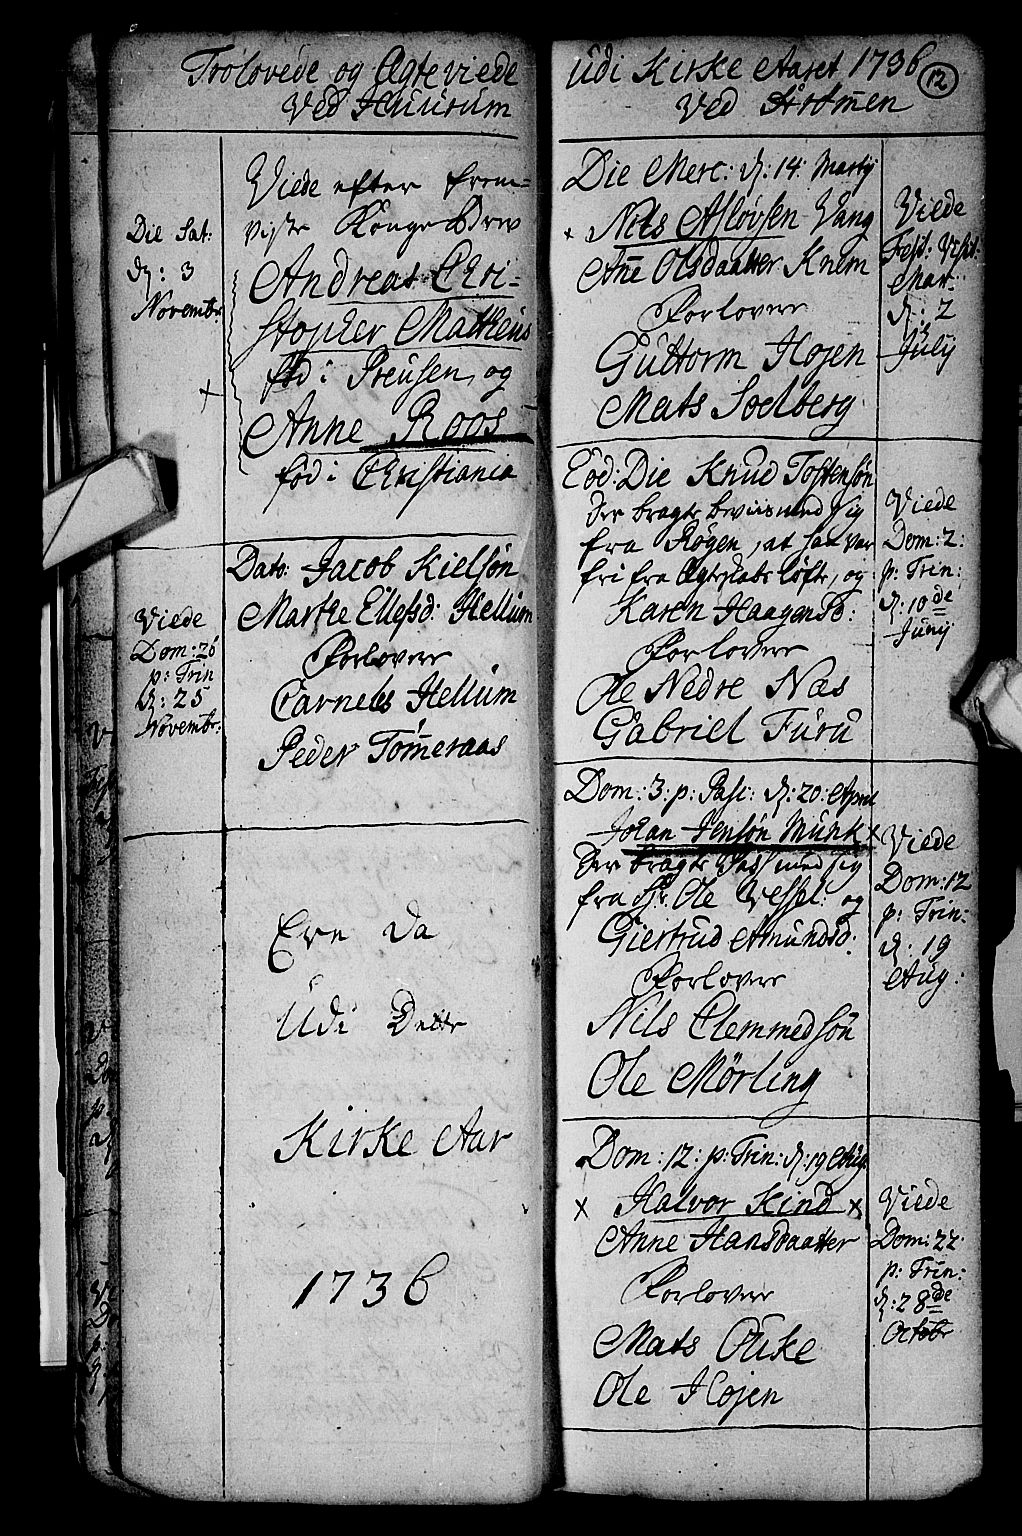 Trolovede og Ægteviede
Ved Huurum
Die Sat:
d: 3
Novembr
Viede efter frem-
viste Konge Brev
Andreas Chri-
stopher Matheus
fød i Preusen, og
Anne Roos
fød i Christiania
Viede
Dom: 26
p: Trin
d: 25
Novembr:
Dato: Jacob Kielsøn
Marthe Ellefsd: Hellum
Forlovere
Carnelis Hellum
Peder Tømeraas
Ere da
Udi Dette
Kirke Aar
1736
Udi Kirke Aaret 1736
12
Ved Strømen
Die Merc: d: 14 Martij
Nils Asløvsen Vang
Ane Olsdaatter Knem
Forlovere
Guttorm Hojen
Mats Soelberg
Viede
Fest: Visit:
Mar:
d: 2
July
Eod: Die Knud Tostensøn
der bragte beviis med sig
fra Røgen, at han var
fri fra Ægteskabs løfte, og
Karen Haagensd:
Forlovere
Ole Nedre Næs
Gabriel Furu
Viede
Dom: 2:
p: Trin:
d: 10de
Junij
Dom: 3: p: Pasc: d: 20: April
Johan Jensøn Munk
der bragte Pass med sig
fra Hr. Ole Vessel: og
Giertrud Amundsd:
Forlovere
Nils Clemmedsøn
Ole Mørling
Viede
Dom: 12
p: Trin:
d: 19
Aug:
Dom: 12: p: Trin: d: 19 Aug
Halvor Kind
Anne Hansdaatter
Forlovere
Mats Ouke
Ole Hojen
Viede
Dom: 22
p: Trin:
d: 28de
Octobr